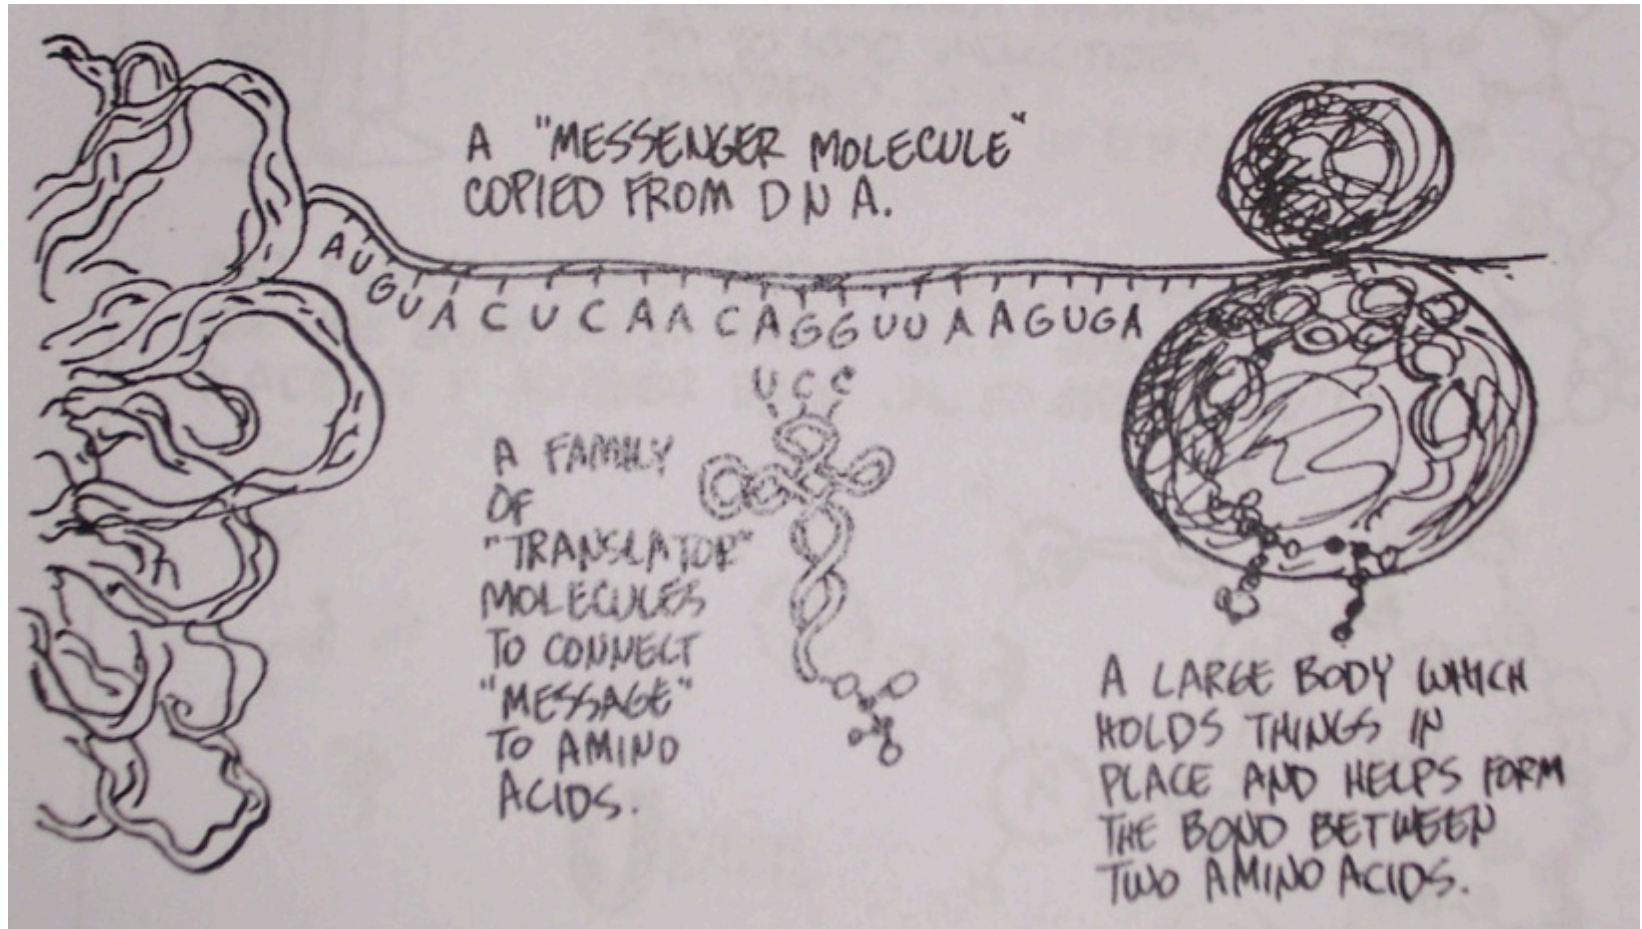 A "MESSENGER MOLECULE"
COPIED FROM DNA.
AUGUACUCAACAGGUUAAGUGA
UCC
A FAMILY
OF
"TRANSLATOR"
MOLECULES
TO CONNECT
"MESSAGE"
TO AMINO
ACIDS.
A LARGE BODY WHICH
HOLDS THINGS IN
PLACE AND HELPS FORM
THE BOND BETWEEN
TWO AMINO ACIDS.